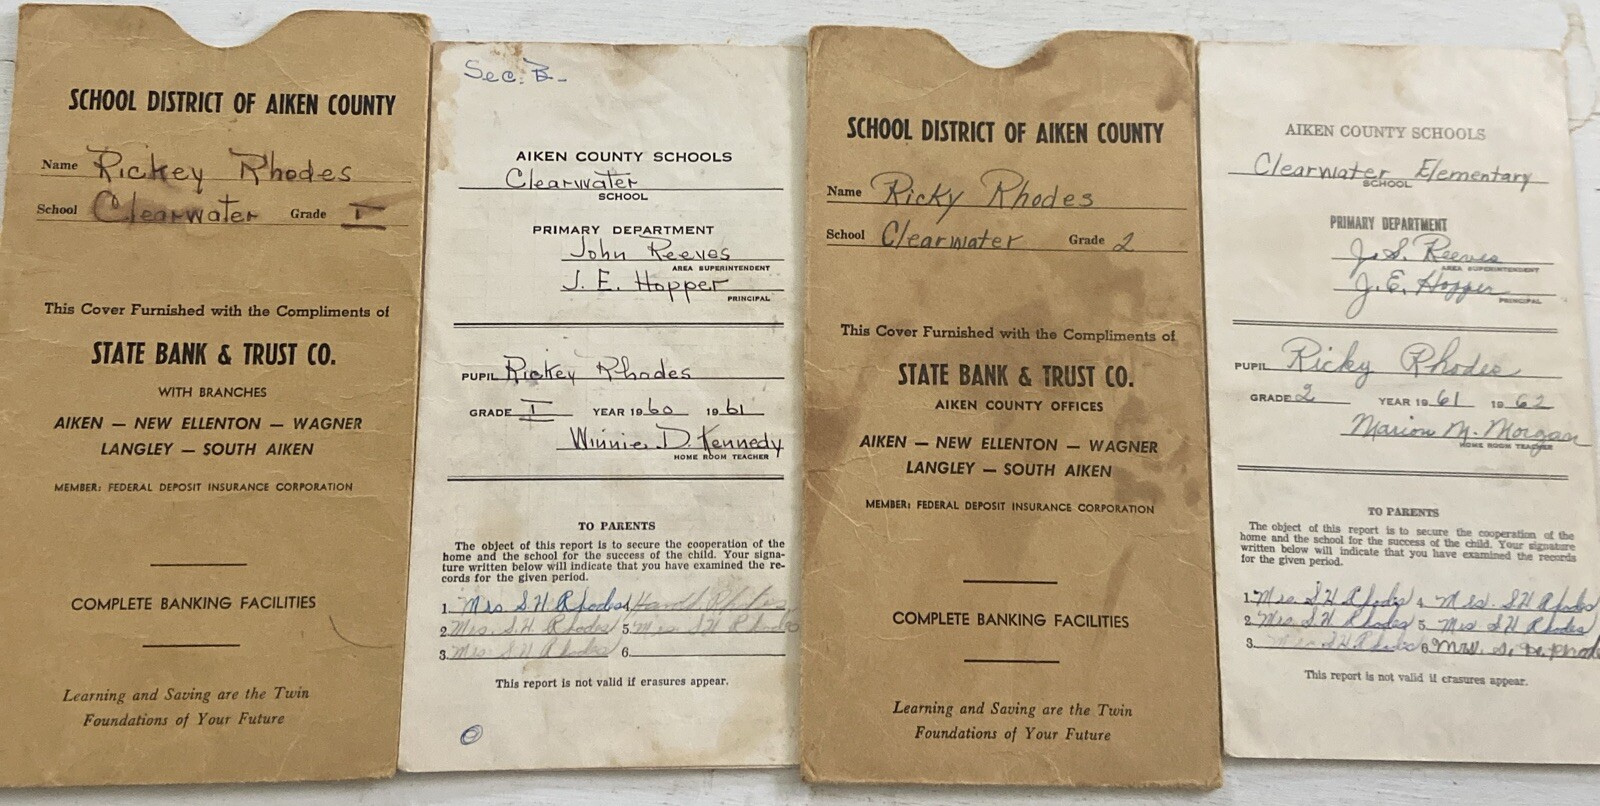 SCHOOL DISTRICT OF AIKEN COUNTY
Name Rickey Rhodes
School Clearwater Grade I
This Cover Furnished with the Compliments of
STATE BANK & TRUST CO.
WITH BRANCHES
AIKEN — NEW ELLENTON — WAGNER
LANGLEY — SOUTH AIKEN
MEMBER: FEDERAL DEPOSIT INSURANCE CORPORATION
COMPLETE BANKING FACILITIES
Learning and Saving are the Twin
Foundations of Your Future
Sec. B-
AIKEN COUNTY SCHOOLS
Clearwater
SCHOOL
PRIMARY DEPARTMENT
John Reeves
AREA SUPERINTENDENT
J. E. Hopper
PRINCIPAL
PUPIL Rickey Rhodes
GRADE I YEAR 1960 1961
Winnie D. Kennedy
HOME ROOM TEACHER
TO PARENTS
The object of this report is to secure the cooperation of the
home and the school for the success of the child. Your signa-
ture written below will indicate that you have examined the re-
cords for the given period.
1. Mrs S H Rhodes 4.
2. Mrs. S H Rhodes 5. Mrs. S H Rhodes
3. Mrs. S H Rhodes 6.
This report is not valid if erasures appear.
SCHOOL DISTRICT OF AIKEN COUNTY
Name Ricky Rhodes
School Clearwater Grade 2
This Cover Furnished with the Compliments of
STATE BANK & TRUST CO.
AIKEN COUNTY OFFICES
AIKEN — NEW ELLENTON — WAGNER
LANGLEY — SOUTH AIKEN
MEMBER: FEDERAL DEPOSIT INSURANCE CORPORATION
COMPLETE BANKING FACILITIES
Learning and Saving are the Twin
Foundations of Your Future
AIKEN COUNTY SCHOOLS
Clearwater Elementary
SCHOOL
PRIMARY DEPARTMENT
J. S. Reeves
AREA SUPERINTENDENT
J. E. Hopper
PRINCIPAL
PUPIL Ricky Rhodes
GRADE 2 YEAR 1961 1962
Marion M. Morgan
HOME ROOM TEACHER
TO PARENTS
The object of this report is to secure the cooperation of the
home and the school for the success of the child. Your signature
written below will indicate that you have examined the records
for the given period.
1. Mrs. S H Rhodes 4. Mrs. S H Rhodes
2. Mrs. S H Rhodes 5. Mrs S H Rhodes
3. Mrs S H Rhodes 6. Mrs. S. H. Rhode
This report is not valid if erasures appear.